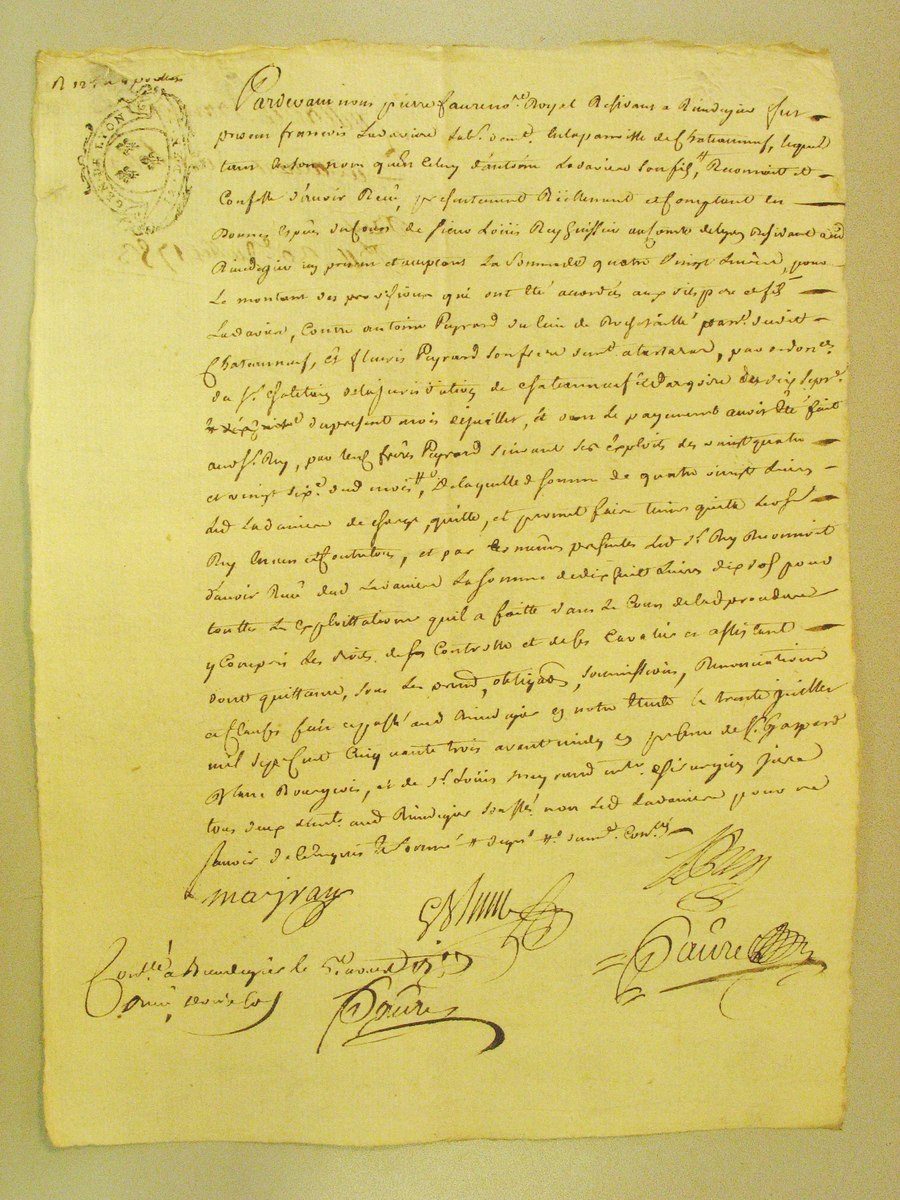 GEN. DE LION
Pardevant nous pierre faure no.re Royal Residant a Rivedegier fut
present francois Ladavière Lab.r dem.t en la paroisse de Chateauneuf, lequel
tant en son nom qu'en celuy d'antoine Ladavière son fils, # Reconnoit et
Confesse d'avoir Reçû, presentement Réellement et Comptant en
Bonnes espèces du Cours de sieur Loüis Rey huissier au Comté de Lyon Residant aud
Rivedegier icy present et acceptant La Somme de quatre vingt Livres, pour
Le montant des provisions qui ont été accordés auxdits pere et fils
Ladavière, Contre antoine Peyrard du lieu de Rochetaillé par.se dudit
Chateauneuf, Et fleuris Peyrard son frere dem.t a tartaras, par ordon.ces
du S.r Chatelain de la jurisdiction de Chateauneuf et dargoire des dix sept
du present mois de juillet, et dont le payement avoir été fait
aud S.r Rey, par lesd frères Peyrard suivant ses exploits des vingt quatre
et vingt six.e dud mois #, De laquelle d somme de quatre vingt Livres
Led Ladavière decharge, quitte, et promet faire tenir quitte Led S.r
Rey envers et Contre tous, et par les mêmes presentes Led S.r Rey Reconnoit
d'avoir Reçû dud Ladavière La somme de dix huit Livres dix sols pour
touttes Les exploittations qu'il a faitte dans Le Cours de lad procedure
y Compris Les droits de Controlle et de ses Cavaliers et assistants
dont quittance, sous Les prom.es, obligaõns, soumissions, Renonciations
et Clauses fait et passé aud Rivedegier en notre étude Le trente juillet
mil sept Cent Cinquante trois avant midy en presence de S.r Gaspard
Blanc Bourgeois, et de S.r Loüis mayraud m.tre Chirurgien juré
tous deux dem.t aud Rivedegier soussignés non Led Ladavière pour ne
savoir de ce enquis et sommé
Rey
mayraud
GBlanc
Faure
Contrôlé a Rivedegier le aoust 1753
Reçu douze sols
Faure